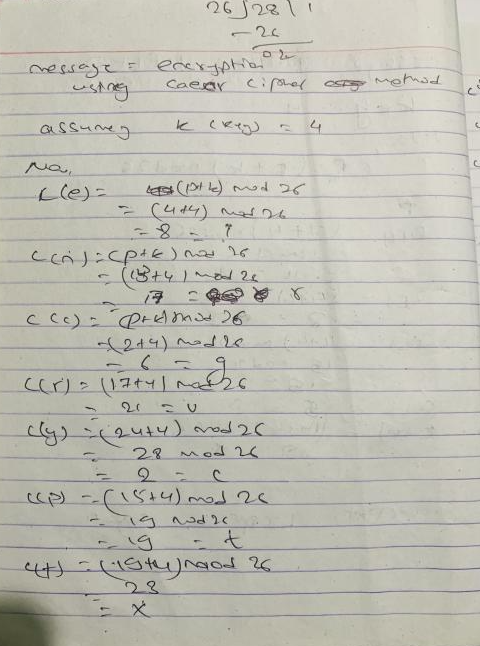 26 ) 28 ( 1
- 26
02
message = encryption
using caesar cipher method
assuming k (key) = 4
Now,
C(e) = (p+k) mod 26
= (4+4) mod 26
= 8 = i
C(n) = (p+k) mod 26
= (13+4) mod 26
= 17 = r
C(c) = (p+k) mod 26
= (2+4) mod 26
= 6 = g
C(r) = (17+4) mod 26
= 21 = v
C(y) = (24+4) mod 26
= 28 mod 26
= 2 = c
C(p) = (15+4) mod 26
= 19 mod 26
= 19 = t
C(t) = (19+4) mod 26
23
= x